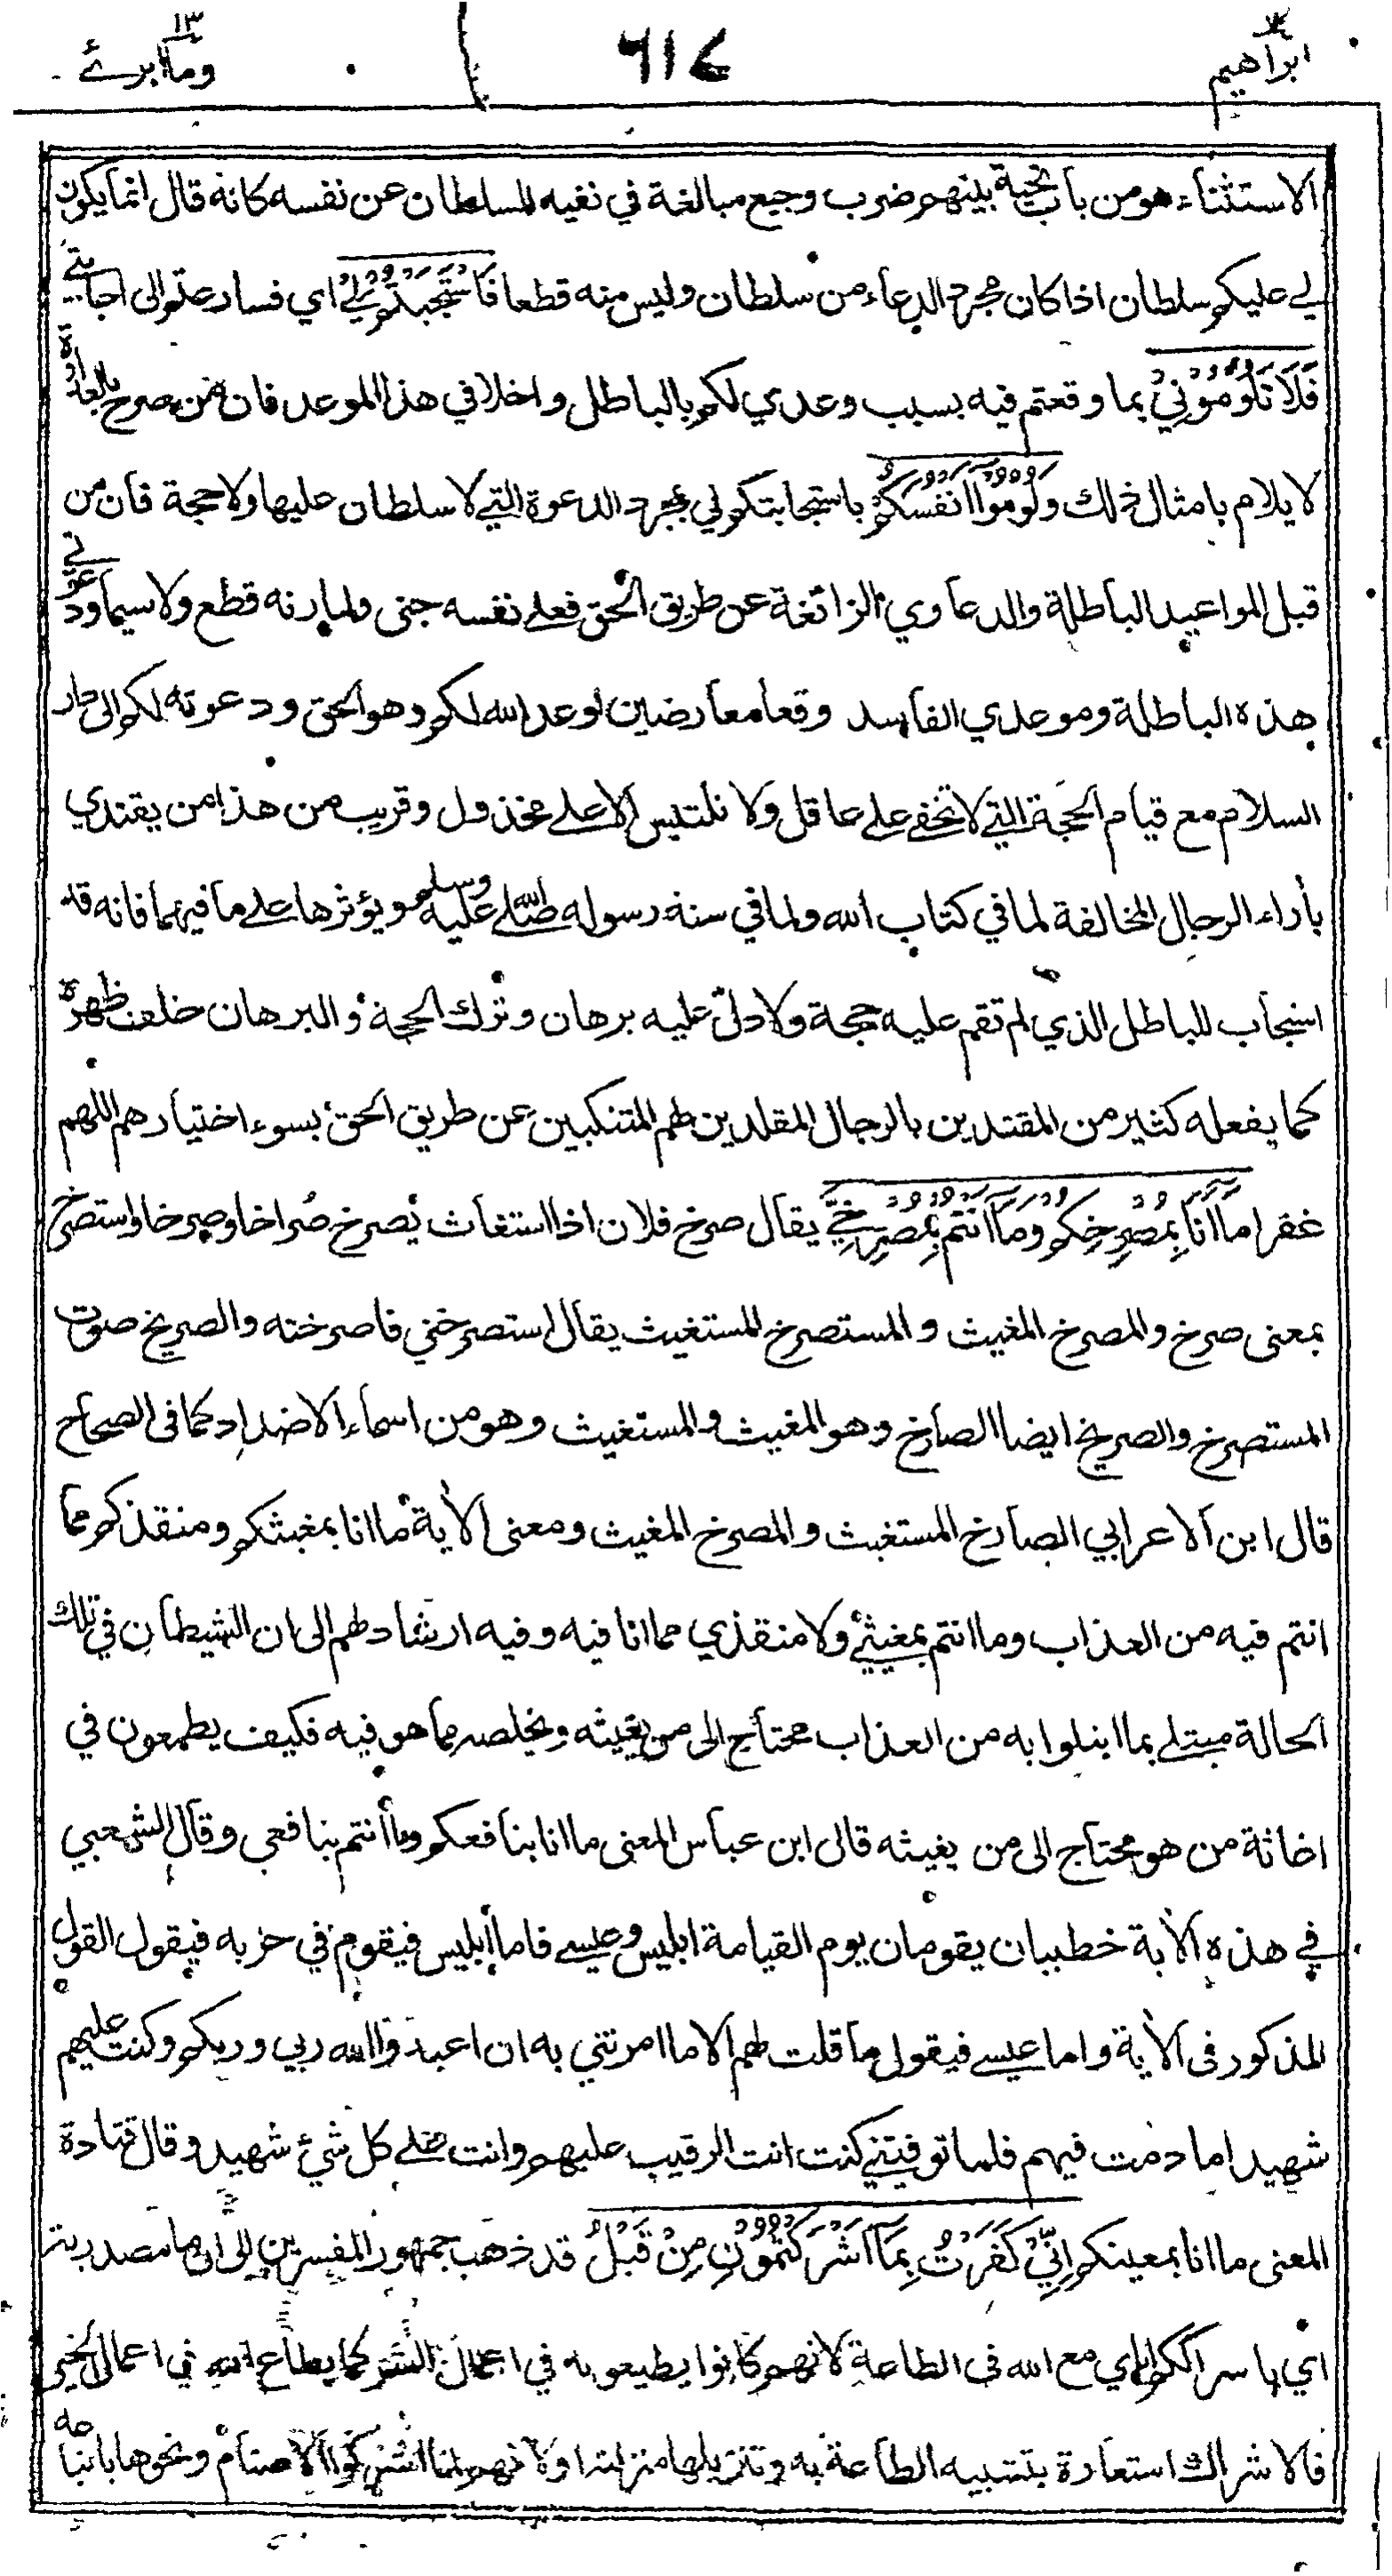 ابراهيم ١٤
٦١٧
وما ابرئ ١٣
الاستثناء هو من باب تحية بينهم ضرب وجيع مبالغة في نفيه للسلطان عن نفسه كانه قال انما يكون
لي عليكم سلطان اذا كان مجرد الدعاء من سلطان وليس منه قطعا فَاسْتَجَبْتُمْ لِيْ اي فسارعتم الى اجابتي
فَلَا تَلُوْمُوْنِيْ بما وقعتم فيه بسبب وعدي لكم بالباطل واخلافي هذا الموعد فان من صرح بالعداوة
لا يلام بامثال ذلك وَلُوْمُوْا اَنْفُسَكُمْ باستجابتكم لي بمجرد الدعوة التي لا سلطان عليها ولا حجة فان من
قبل المواعيد الباطلة والدعاوي الزائغة عن طريق الحق فعلى نفسه جنى ولمارنه قطع ولا سيما ودعوتي
هذه الباطلة وموعدي الفاسد وقعا معارضين لوعد الله لكم وهو الحق ودعوته لكم الى دار
السلام مع قيام الحجة التي لا تخفى على عاقل ولا تلتبس الا على مخذول وقريب من هذا من يقتدي
بأراء الرجال المخالفة لما في كتاب الله ولما في سنة رسوله صلى الله عليه وسلم ويؤثرها على ما فيهما فانه قد
استجاب للباطل الذي لم تقم عليه حجة ولا دل عليه برهان وترك الحجة والبرهان خلف ظهره
كما يفعله كثير من المقتدين بالرجال المقلدين لهم المتنكبين عن طريق الحق بسوء اختيارهم اللهم
غفرا مَا اَنَا بِمُصْرِخِكُمْ وَمَا اَنْتُمْ بِمُصْرِخِيَّ يقال صرخ فلان اذا استغاث يصرخ صُراخا وصرخا واستصرخ
بمعنى صرخ والمصرخ المغيث والمستصرخ المستغيث يقال استصرخني فاصرخته والصريخ صوت
المستصرخ والصريخ ايضا الصارخ وهو المغيث والمستغيث وهو من اسماء الاضداد كما فى الصحاح
قال ابن الاعرابي الصارخ المستغيث والمصرخ المغيث ومعنى الأية ما انا بمغيثكم ومنقذكم مما
انتم فيه من العذاب وما انتم بمغيثي ولا منقذي مما انا فيه وفيه ارشاد لهم الى ان الشيطان في تلك
الحالة مبتلى بما ابتلوا به من العذاب محتاج الى من يغيثه ويخلصه مما هو فيه فكيف يطمعون في
اغاثة من هو محتاج الى من يغيثه قال ابن عباس المعنى ما انا بنافعكم وما أنتم بنافعى وقال الشعبي
في هذه الأية خطيبان يقومان يوم القيامة ابليس وعيسى فاما أبليس فيقوم في حزبه فيقول القول
المذكور فى الأية واما عيسى فيقول ما قلت لهم الا ما امرتني به ان اعبدوا الله ربي وربكم وكنت عليهم
شهيدا ما دمت فيهم فلما توفيتني كنت انت الرقيب عليهم وانت على كل شيء شهيد وقال قتادة
المعنى ما انا بمعينكم اِنِّيْ كَفَرْتُ بِمَا اَشْرَكْتُمُوْنِ مِنْ قَبْلُ قد ذهب جمهور المفسرين الى ان ما مصدرية
اي باشراككم اياي مع الله فى الطاعة لانهم كانوا يطيعونه في اعمال الشر كما يطاع الله في اعمال الخير
فالاشراك استعارة بتشبيه الطاعة به وتنزيلها منزلته او لانهم لما اشركوا الاصنام ونحوها باتباعه